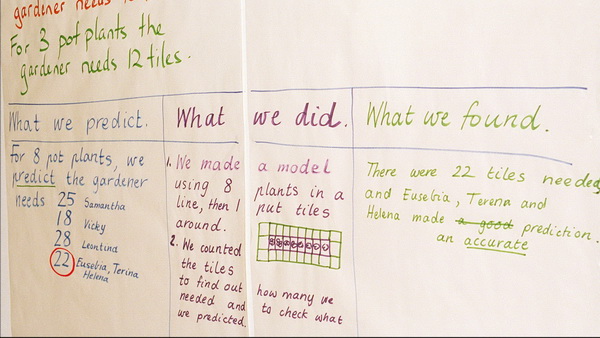 gardener needs
For 3 pot plants the
gardener needs 12 tiles.
What we predict.
For 8 pot plants, we
predict the gardener
needs 25 Samantha
18 Vicky
28 Leontina
22 Eusebia, Terina
Helena
What we did.
1. We made a model
using 8 plants in a
line, then I put tiles
around.
2. We counted
the tiles
to find out how many we
needed and to check what
we predicted.
What we found.
There were 22 tiles needed
and Eusebia, Terena and
Helena made a good prediction.
an accurate